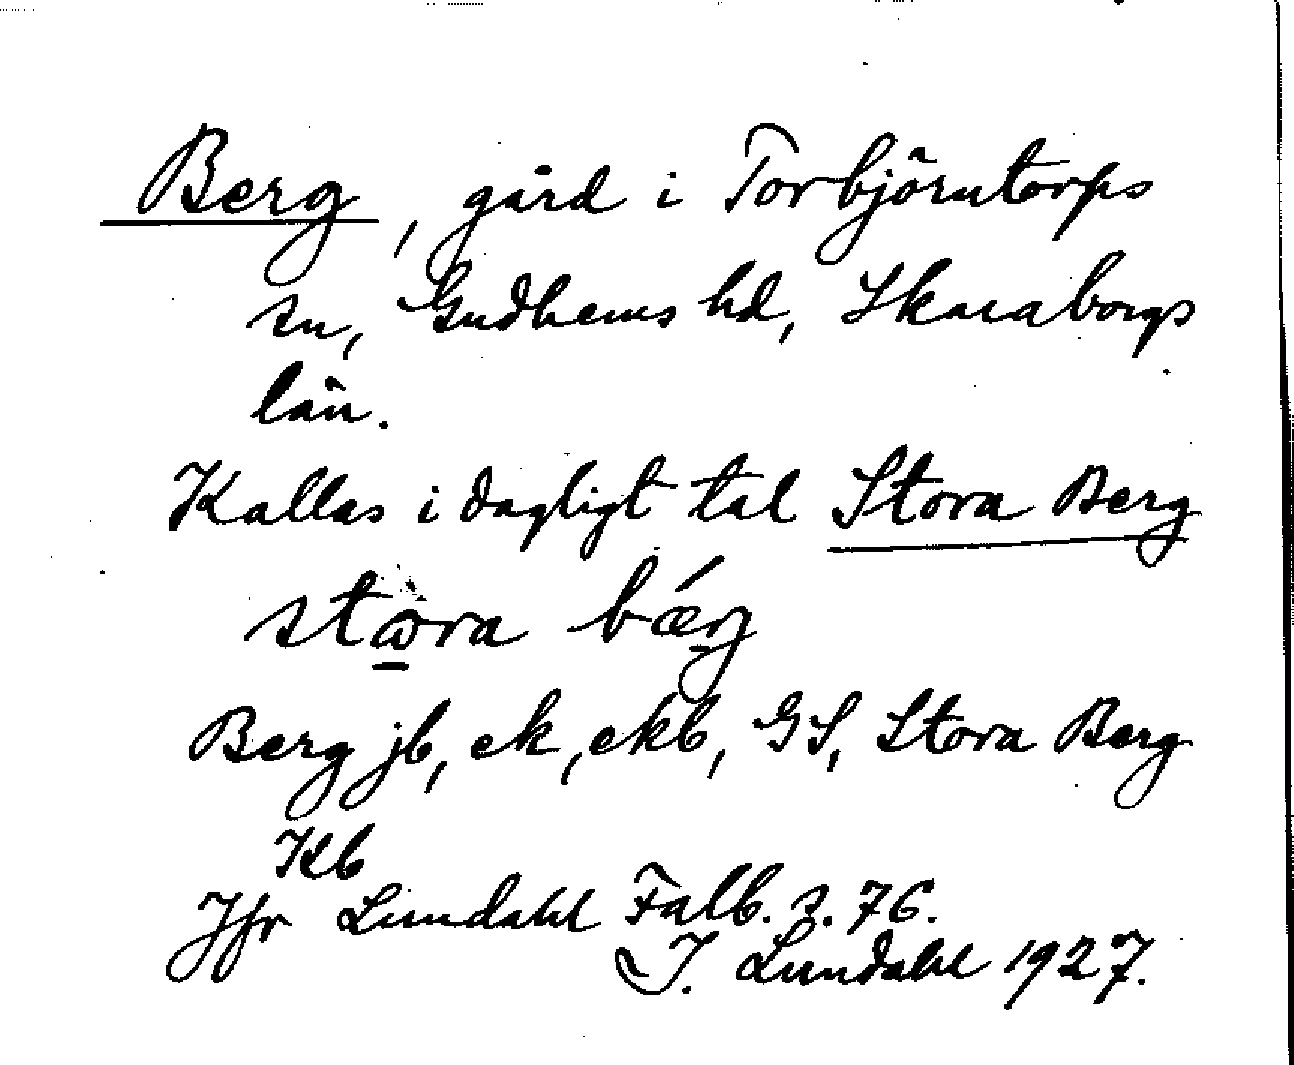 Berg, gård i Torbjörntorps
sn, Gudhems hd, Skaraborgs
län.
Kallas i dagligt tal Stora Berg
stωra bærj
Berg jb, ek, ekb, GS, Stora Berg
Kb
Jfr Lundahl Falb. s. 76.
I. Lundahl 1927.